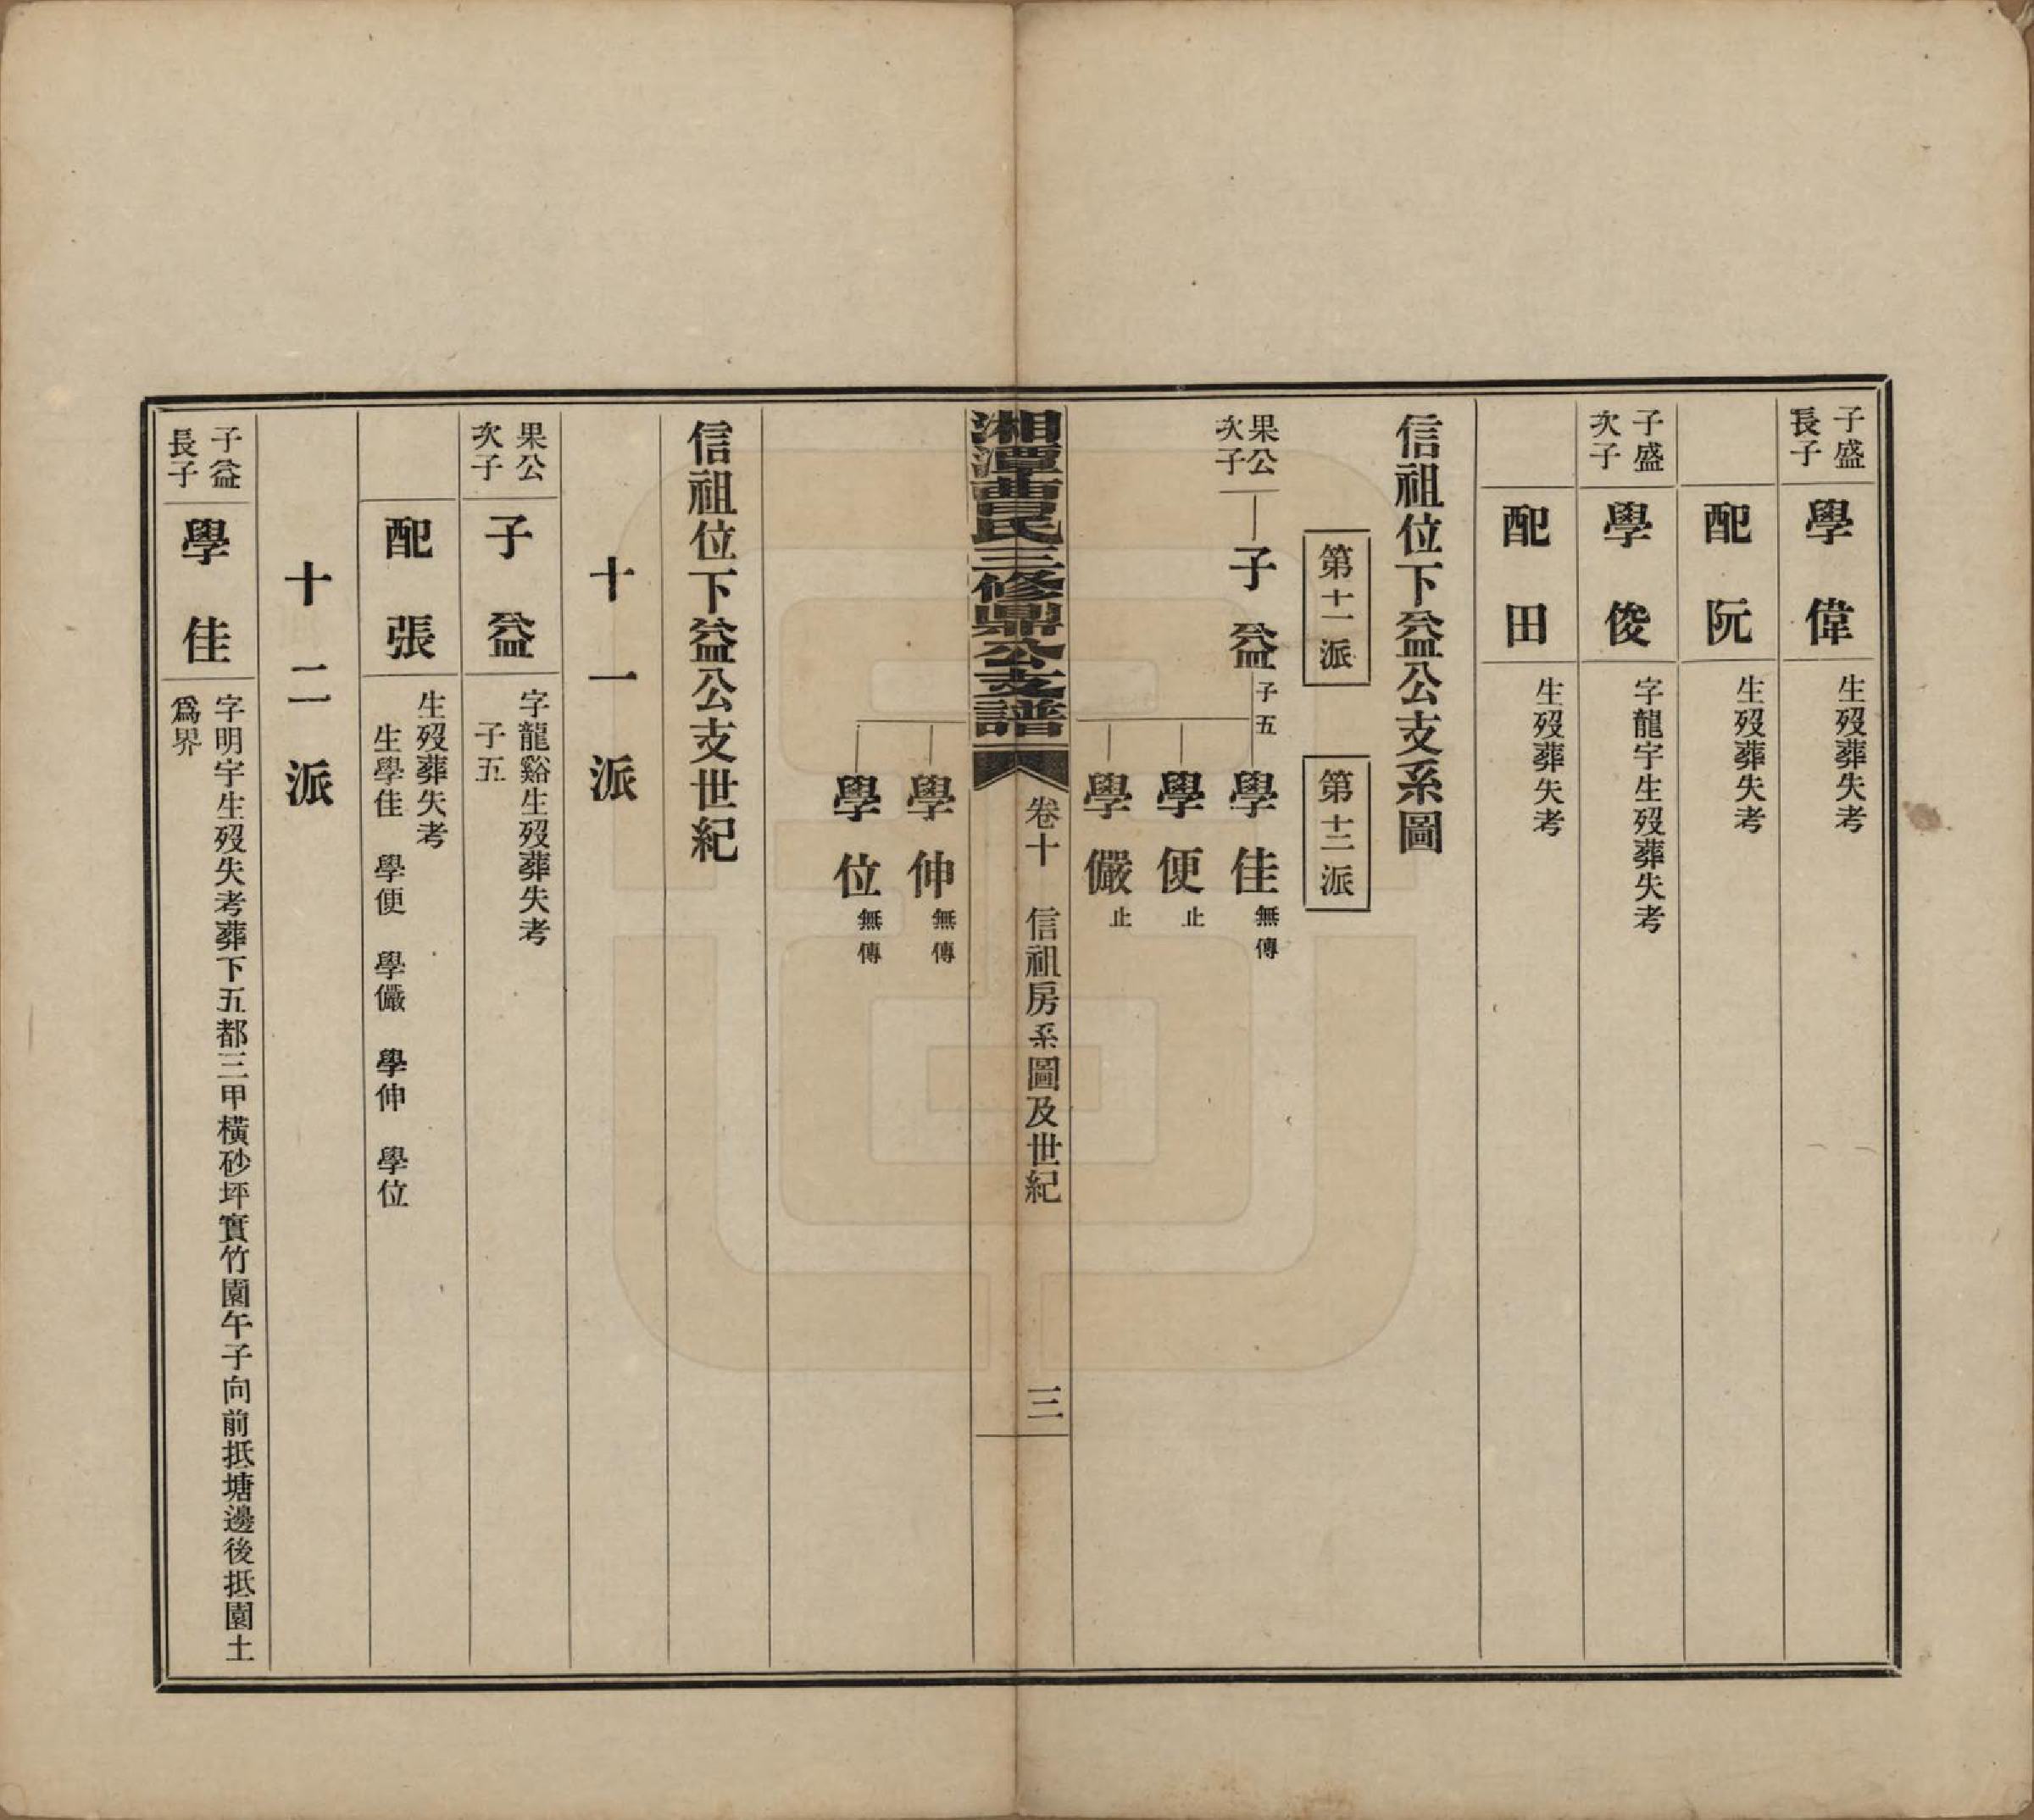 子盛
長子
學偉
生歿葬失考
配阮
生歿葬失考
子盛
次子
學俊
字龍宇生歿葬失考
配田
生歿葬失考
信祖位下益公支系圖
第十一派
第十二派
果公
次子
子益
子五
學佳
無傳
學便
止
學儼
止
湘潭曹氏三修鼎公支譜
卷十
信祖房系圖及世紀
三
學伸
無傳
學位
無傳
信祖位下益公支世紀
十一派
果公
次子
子益
字龍谿生歿葬失考
子五
配張
生歿葬失考
生學佳 學便 學儼 學伸 學位
十二派
子益
長子
學佳
字明宇生歿失考葬下五都三甲橫砂坪實竹園午子向前抵塘邊後抵園土
爲界